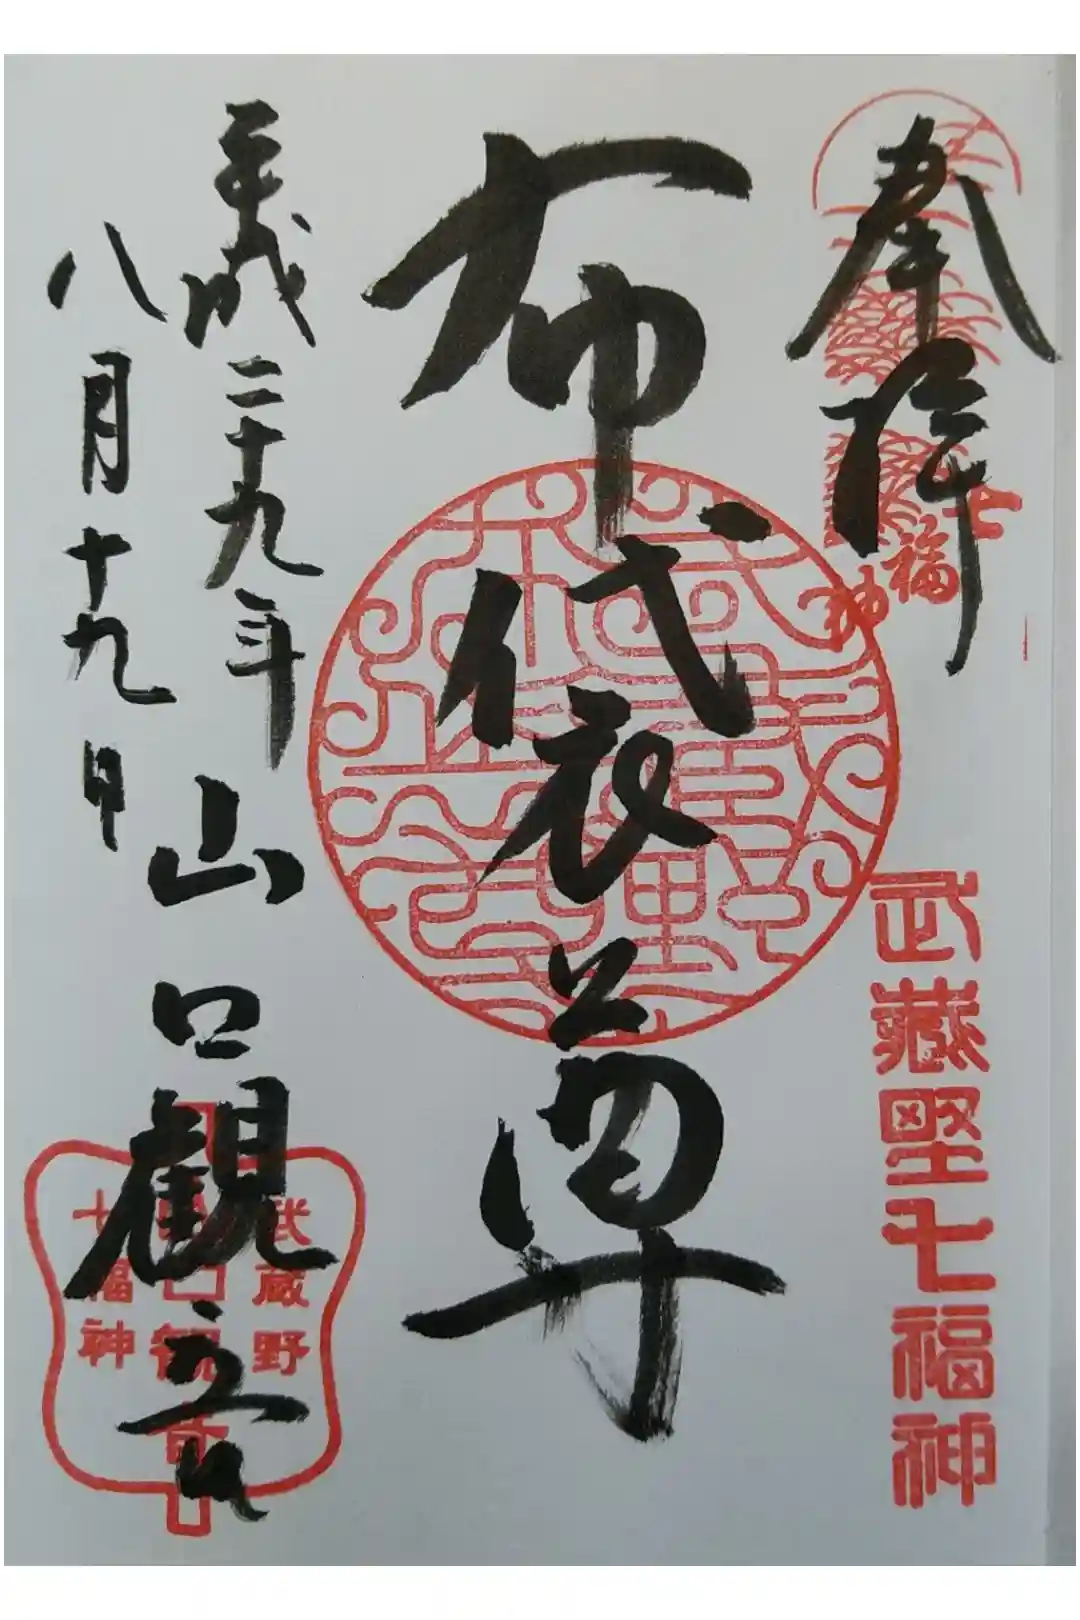 奉拝
七福神
武蔵野七福神
布袋尊
平成二十九年
八月十九日
山口観音
武蔵野
山口観音
七福神